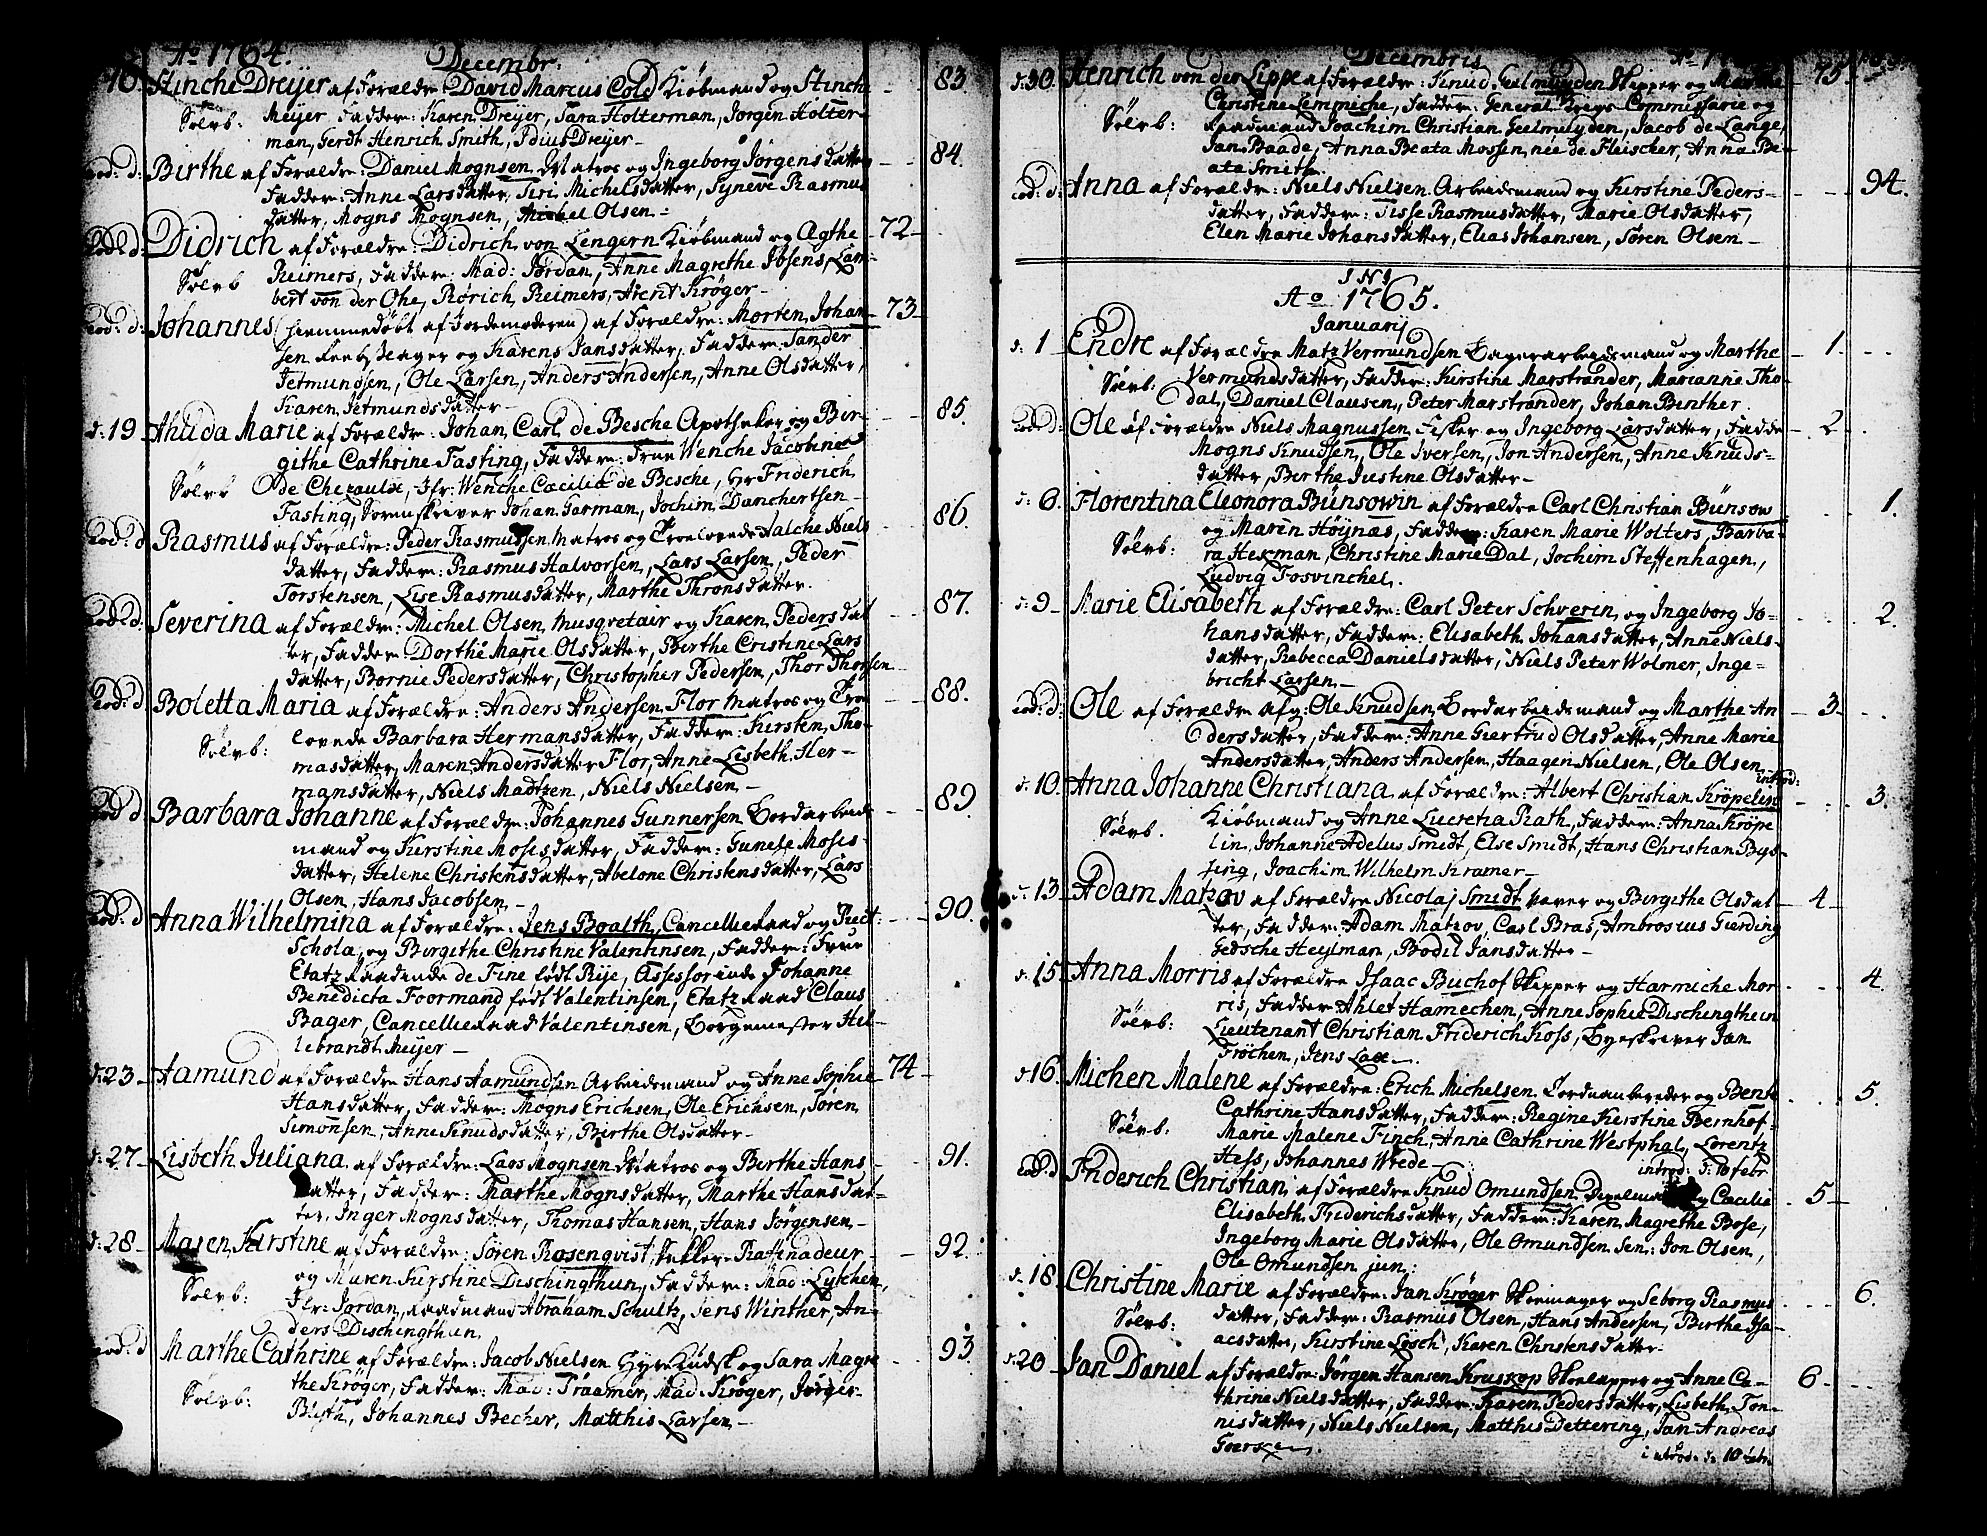 Ao 1764.
Decembr.
Stinche Dreyer af Forældre: David Marcus Cold Kiøbmand og Stinche 83.
Sølvb: Meyer Fadder: Karen Dreyer, Sara Holterman, Jørgen Holter-
man, Gerdt Henrich Smith, Dreyer
eod: d: Birthe af Forældre: Daniel Mognsen Matros og Ingeborg Jørgensdatter 84.
Fadder: Anne Larsdatter, Siri Michelsdatter, Syneve Rasmus
datter, Mogns Mognsen, Michel Olsen
eod: d: Didrich af Forældre: Didrich von Lengern Kiøbmand og Agthe 72
Sølvb Reimers, Fadder: Mad: Jordan, Anne Magrethe Ibsens, Lam-
bert von der Ohe, Rørich, Reimers, Arent Krøger
eod: d: Johannes (hiemmedøbt af Jordemoderen) af Forældre: Morten Johan 73
sen og Karens Jansdatter, Fadder: Sander
Jetmundsen, Ole Larsen, Anders Andersen, Anne Olsdatter,
Karen Jetmundsdatter
d: 19 Ahlida Marie af Forældre: Johan Carl de Besche Apotheker og Bir- 85.
githe Cathrine Fasting, Fadder: Frue Wenche Jacobine
Sølvb de Chezaulx, Jfr: Wenche Cæcilia de Besche, Hr Friderich
Fasting, Sorenskriver Johan Garman, Jochim Danchertsen
eod: d Rasmus af Forældre: Peder Rasmussen Matros og Troelovede Aalche Niels 86.
datter, Fadder: Rasmus Halvorsen, Lars Larsen, Peder
Torstensen, Lise Rasmusdatter, Marthe Thronsdatter.
eod: d: Severina af Forældre: Michel Olsen, Musqvetair og Karen Peders dat 87.
ter, Fadder: Dorthe Marie Olsdatter, Birthe Cristine Lars
datter, Bornie Pedersdatter, Christopher Pedersen, Thor Thorsen
eod: d Boletta Maria af Forældre: Anders Andersen Flor Matros og Troe 88.
Sølvb: lovede Barbara Hermansdatter, Fadder: Kirsten Tho-
masdatter, Maren Andersdatter Flor, Anne Lisbeth Her-
mansdatter, Niels Madtzen, Niels Nielsen
eod: d Barbara Johanne af Forældre: Johannes Gunnersen Bordarbeids 89
mand og Kirstine Mosesdatter, Fadder: Gunele Moses-
datter, Helene Christensdatter, Abelone Christensdatter, Lars
Olsen, Hans Jacobsen
eod: d Anna Wilhelmina af Forældre: Jens Boalth, Cancellieraad og Rect: 90.
Schola, og Birgithe Christine Valentinsen, Fadder: Frue
Etatzraadinde de Fine født Rije, Assessorinde Johanne
Benedicta Foormand født Valentinsen, Etatzraad Claus
Bager, Cancellieraad Valentinsen, Borgemester Hil-
lebrandt Meyer
d: 23 Aamund af Forældre Hans Aamundsen Arbeidsmand og Anne Sophie 74
Hansdatter, Fadder: Mogns Erichsen, Ole Erichsen, Søren
Simonsen, Anne Knudsdatter, Birthe Olsdatter
d: 27 Lisbeth Juliana af Forældre: Lars Mognsen Matros og Birthe Hans 91.
datter, Fadder: Marthe Mognsdatter, Marthe Hansdat-
ter, Inger Mognsdatter, Thomas Hansen, Hans Jørgensen
d: 28 Maren Kirstine af Forældre: Søren Rosenqvist, Sukker-Raffinadeur 92.
og Maren Kirstine Dischingthun, Fadder: Mad: Lytchen,
Sølvb: Jfr: Jordan, Raadmand Abraham Schultz, Jens Winther, An-
ders Dischingthun
eod: d Marthe Cathrine af Forældre: Jacob Nielsen og Sara Magre 93
Sølvb: the Krøger, Fadder: Mad: Traamer, Mad: Krøger, Jørger
Johannes Becher, Matthis Larsen
Decembris
d: 30. Henrich von der Lippe af Forældre: Knud Geelmuyden Skipper og Marthe 75.
Christine Lemmiche, Fadder: General Krigs-Commissarie og
Sølvb: Raadmand Joachim Christian Geelmuyden, Jacob de Lange,
Jan Baade, Anna Beata Mossen, née de Fleischer, Anna Be-
ata Smith
eod: d: Anna af Forældre: Niels Nielsen Arbeidsmand og Kirstine Peders- 94.
datter, Fadder: Sisse Rasmusdatter, Marie Olsdatter,
Elen Marie Johansdatter, Elias Johansen, Søren Olsen
I N I
Ao 1765.
Januarij
d: 1 Endre af Forældre Matz Vermundsen Bagerarbeidsmand og Marthe 1.
Sølvb: Vermundsdatter, Fadder: Kirstine Marstrander, Marianne Tho-
dal, Daniel Clausen, Peter Marstrander, Johan Binther
eod: d: Ole af Forældre Niels Magnussen, Fisker og Ingeborg Larsdatter, Fadder 2
Mogns Knudsen, Ole Iversen, Jon Andersen, Anne Knuds-
datter, Berthe Justine Olsdatter
d: 6. Florentina Eleonora Bünsowin af Forældre Carl Christian Bünsow 1.
og Maren Høynæs, Fadder: Karen Marie Wolters, Barba-
Sølvb: ra Hexman, Christine Marie Dal, Jochim Steffenhagen,
Ludvig Fosvinchel.
d: 9 Marie Elisabeth af Forældre: Carl Peter Schverin, og Ingeborg Jo- 2.
hansdatter, Fadder: Elisabeth Johansdatter, Anne Niels-
datter, Rebecca Danielsdatter, Niels Peter Wolmer, Inge-
bricht Larsen
eod: d: Ole af Forældre afg: Ole Knudsen Bordarbeidsmand og Marthe An 3
dersdatter, Fadder: Anne Giertrud Olsdatter, Anne Marie
Andersdatter, Anders Andersen, Haagen Nielsen, Ole Olsen
introd:
d: 10. Anna Johanne Christiana af Forældre: Albert Christian Kröpelin 3.
Sølvb. Kiøbmand og Anne Lucretia Rath, Fadder: Anna Kröpe
lin, Johanne Adelus Smidt, Else Smidt, Hans Christian Bys-
sing, Joachim Wilhelm Kramer
d: 13 Adam Matzov af Forældre Nicolaj Smidt Væver og Birgithe Olsdat 4
ter, Fadder: Adam Matzov, Carl Bras, Ambrosius Gierding
Gesche Heylman, Bodil Jansdatter
d: 15 Anna Morris af Forældre Isaac Buchof Skipper og Harmiche Mor 4.
ris, Fadder: Ahlet Hamechen, Anne Sophie Dischingthun
Sølvb: Lieutenant Christian Friderich Koss, Byeskriver Jan
Fröchen, Jens Lax
d: 16 Michen Malene af Forældre: Erich Michelsen og Bente 5.
Cathrine Hansdatter, Fadder: Regine Kierstine Bernhof
Sølvb. Marie Malene Finch, Anne Cathrine Westphal, Lorentz
Hess, Johannes Wrede
introd: d: 10 febr
eod: d Friderich Christian af Forældre Knud Omundsen og Cæcilie 5
Elisabeth Friderichsdatter, Fadder: Karen Magrethe Bose,
Ingeborg Marie Olsdatter, Ole Omundsen Sen: Jon Olsen,
Ole Omundsen jun:
d: 18 Christine Marie af Forældre: Jan Krøger Skomager og Seborg Rasmus 6.
Sølvb: datter, Fadder: Rasmus Olsen, Hans Andersen, Birthe Isa-
acsdatter, Kirstine Lösch, Karen Christensdatter
d: 20 Jan Daniel af Forældre: Jørgen Hansen Kruskop Skolapper og Anne Ca- 6
thrine Nielsdatter, Fadder: Karen Pedersdatter, Lisbeth Ton-
nisdatter, Niels Nielsen, Matthis Dettering, Jan Andreas
introd: d: 10 febr.